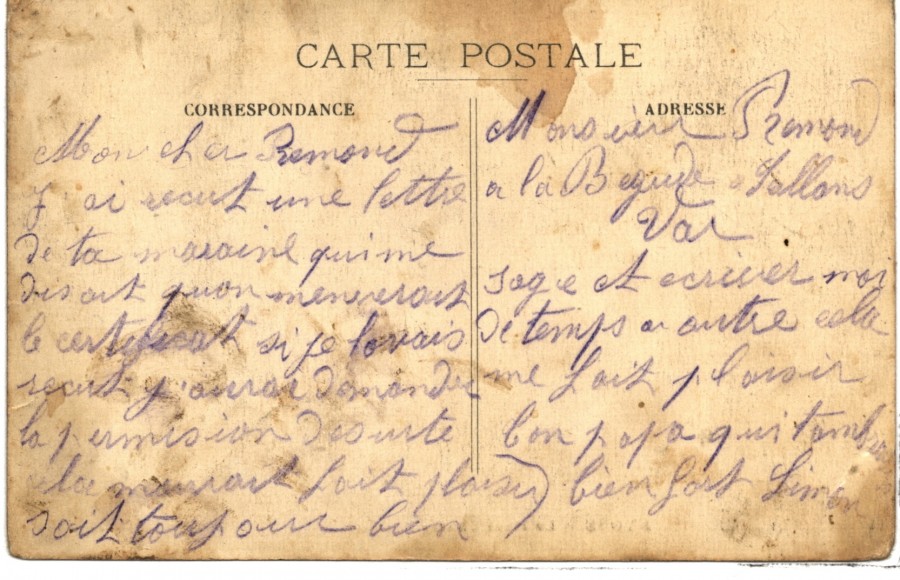 CARTE POSTALE
CORRESPONDANCE
Mon cher Remond
J'ai recut une lettre
de ta maraine qui me
disait quon menverait
le certeficat si je lavais
recut j'aurai demander
la permision de suite
cela maurait fait plaisir
soit toujour bien
ADRESSE
Monsieur Remond
a la Begude Sallons
Var
sage et ecriver moi
de temps a autre cela
me fait plaisir
bon papa qui tambrase
bien fort Simon